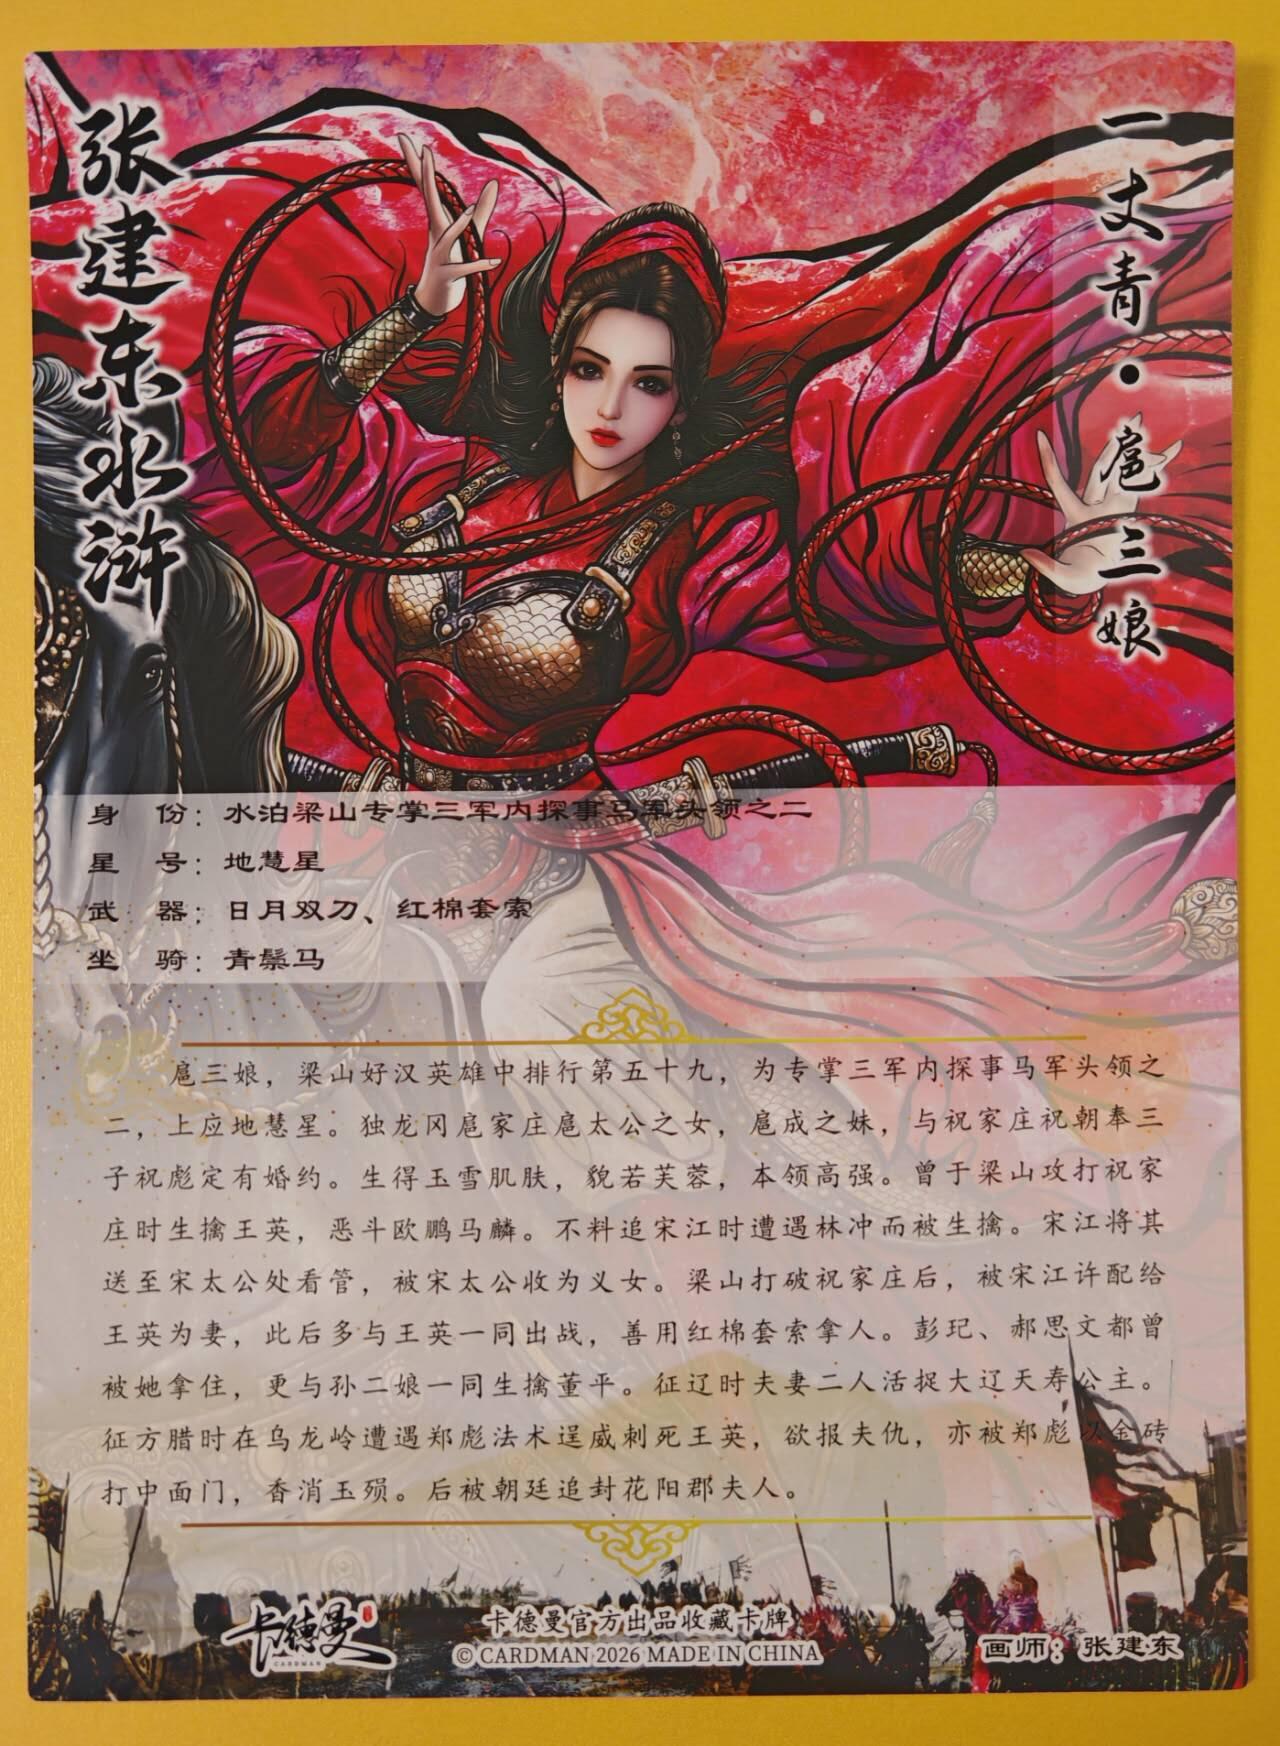 张建东水浒
一丈青·扈三娘
身 份：水泊梁山专掌三军内探事马军头领之二
星 号：地慧星
武 器：日月双刀、红棉套索
坐 骑：青鬃马
扈三娘，梁山好汉英雄中排行第五十九，为专掌三军内探事马军头领之
二，上应地慧星。独龙冈扈家庄扈太公之女，扈成之妹，与祝家庄祝朝奉三
子祝彪定有婚约。生得玉雪肌肤，貌若芙蓉，本领高强。曾于梁山攻打祝家
庄时生擒王英，恶斗欧鹏马麟。不料追宋江时遭遇林冲而被生擒。宋江将其
送至宋太公处看管，被宋太公收为义女。梁山打破祝家庄后，被宋江许配给
王英为妻，此后多与王英一同出战，善用红棉套索拿人。彭玘、郝思文都曾
被她拿住，更与孙二娘一同生擒董平。征辽时夫妻二人活捉大辽天寿公主。
征方腊时在乌龙岭遭遇郑彪法术逞威刺死王英，欲报夫仇，亦被郑彪以金砖
打中面门，香消玉殒。后被朝廷追封花阳郡夫人。
卡德曼
CARDMAN
卡德曼官方出品收藏卡牌
© CARDMAN 2026 MADE IN CHINA
画师：张建东